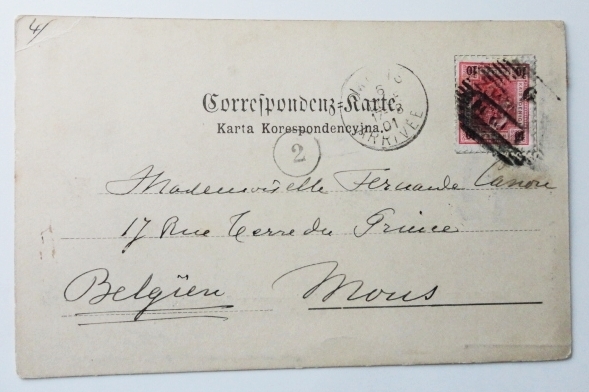 4/
10 10
Correspondenz-Karte.
Karta Korespondencyjna.
01
ARRIVÉE
2
Mademoiselle Fernande Canon
17 Rue Terre du Prince
Belgïen Mons